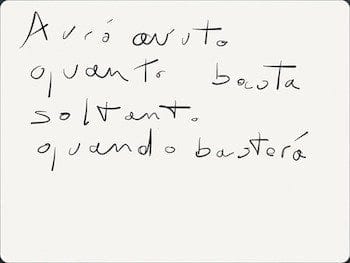 Avrò avuto
quanto basta
soltanto
quando basterà